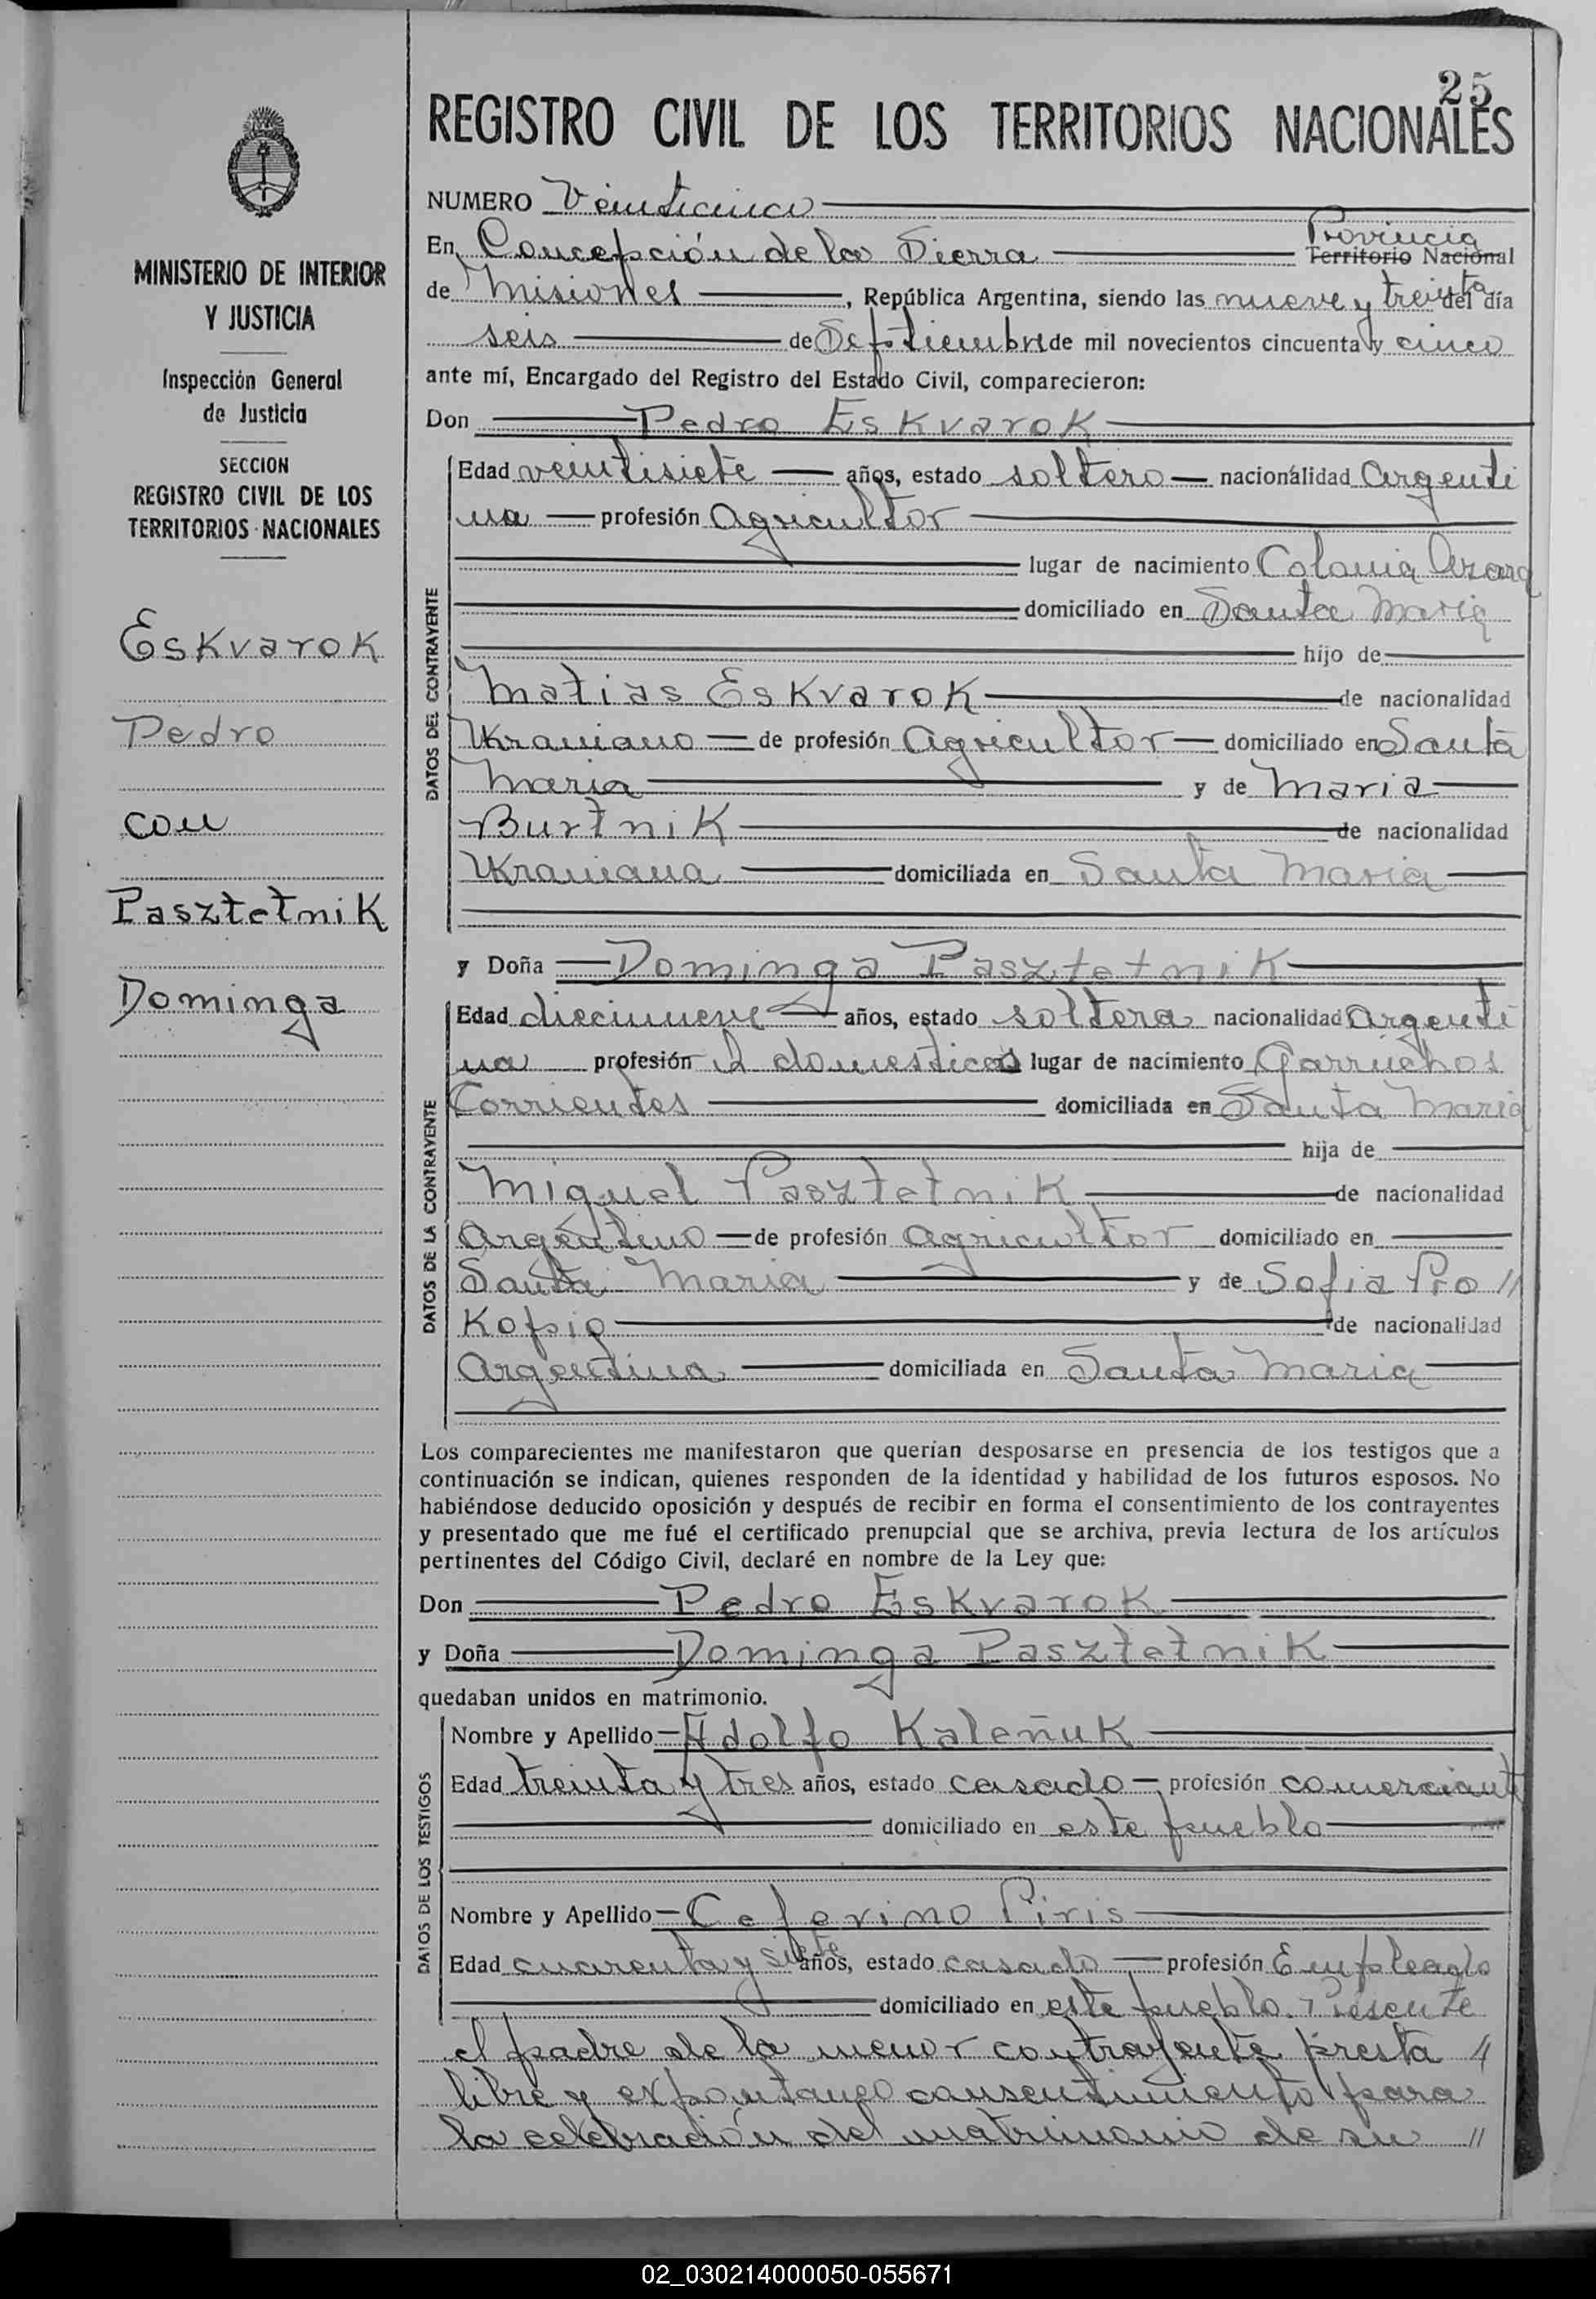 25
REGISTRO CIVIL DE LOS TERRITORIOS NACIONALES
MINISTERIO DE INTERIOR
Y JUSTICIA
Inspección General
de Justicia
SECCION
REGISTRO CIVIL DE LOS
TERRITORIOS NACIONALES
Eskvarok
Pedro
con
Pasztetnik
Dominga
NUMERO Veinticinco
En Concepción de la Sierra Provincia Territorio Nacional
de Misiones, República Argentina, siendo las nueve y treinta del día
seis de Septiembre de mil novecientos cincuenta y cinco
ante mí, Encargado del Registro del Estado Civil, comparecieron:
Don Pedro Eskvarok
DATOS DEL CONTRAYENTE
Edad veintisiete años, estado soltero nacionalidad Argenti
na profesión Agricultor
lugar de nacimiento Colonia Azara
domiciliado en Santa Maria
hijo de
Matias Eskvarok de nacionalidad
Ukraniano de profesión Agricultor domiciliado en Santa
Maria y de Maria
Burtnik de nacionalidad
Ukraniana domiciliada en Santa Maria
y Doña Dominga Pasztetnik
DATOS DE LA CONTRAYENTE
Edad diecinueve años, estado soltera nacionalidad Argenti
na profesión domesticos lugar de nacimiento Garruchos
Corrientes domiciliada en Santa Maria
hija de
Miguel Pasztetnik de nacionalidad
Argentino de profesión Agricultor domiciliado en
Santa Maria y de Sofia Pro //
Kopio de nacionalidad
Argentina domiciliada en Santa Maria
Los comparecientes me manifestaron que querían desposarse en presencia de los testigos que a
continuación se indican, quienes responden de la identidad y habilidad de los futuros esposos. No
habiéndose deducido oposición y después de recibir en forma el consentimiento de los contrayentes
y presentado que me fué el certificado prenupcial que se archiva, previa lectura de los artículos
pertinentes del Código Civil, declaré en nombre de la Ley que:
Don Pedro Eskvarok
y Doña Dominga Pasztetnik
quedaban unidos en matrimonio.
DATOS DE LOS TESTIGOS
Nombre y Apellido Adolfo Kaleñuk
Edad treinta y tres años, estado casado profesión comerciante
domiciliado en este pueblo
Nombre y Apellido Ceferino Piris
Edad cuarenta y siete años, estado casado profesión Empleado
domiciliado en este pueblo. Presente
el padre de la menor contrayente presta //
libre y expontaneo consentimiento para
la celebración del matrimonio de su //
02_030214000050-055671